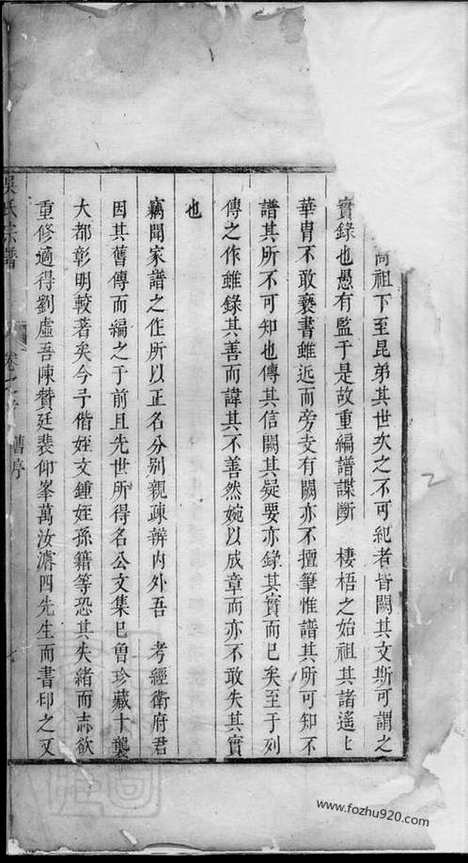 高祖下至昆弟其世次之不可紀者皆闕其文斯可謂之
實錄也愚有監于是故重編譜諜斷 棲梧之始祖其諸遙上
華胄不敢褻書雖近而旁支有闕亦不擅筆惟譜其所可知不
譜其所不可知也傳其信闕其疑要亦錄其實而已矣至于列
傳之作雖錄其善而諱其不善然婉以成章而亦不敢失其實
也
竊聞家譜之作所以正名分别親疎辨内外吾 考經衛府君
因其舊傳而編之于前且先世所得名公文集已曾珍藏十襲
大都彰明較著矣今予偕姪文鍾姪孫籍等恐其失緒而志欲
重修適得劉虛吾陳贊廷裴仰峯萬汝濬四先生而書印之又
吳氏宗譜 卷之首 譜序
www.fozhu920.com